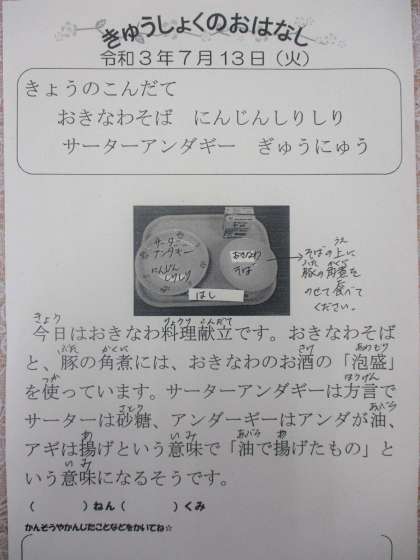 きゅうしょくのおはなし
令和3年7月13日（火）
きょうのこんだて
おきなわそば　にんじんしりしり
サーターアンダギー　ぎゅうにゅう
サーター
アンダギー
にんじん
しりしり
おきなわ
そば
はし
そばの上に
うえ
豚の角煮を
ぶた かくに
のせて食べて
た
ください。
きょう りょうり こんだて
今日はおきなわ料理献立です。おきなわそば
ぶた かくに さけ あわもり
と、豚の角煮には、おきなわのお酒の「泡盛」
つか ほうげん
を使っています。サーターアンダギーは方言で
さとう あぶら
サーターは砂糖、アンダーギーはアンダが油、
あ いみ あぶら あ
アギは揚げという意味で「油で揚げたもの」と
いみ
いう意味になるそうです。
（　　　）ねん（　　　）くみ
かんそうやかんじたことなどをかいてね☆